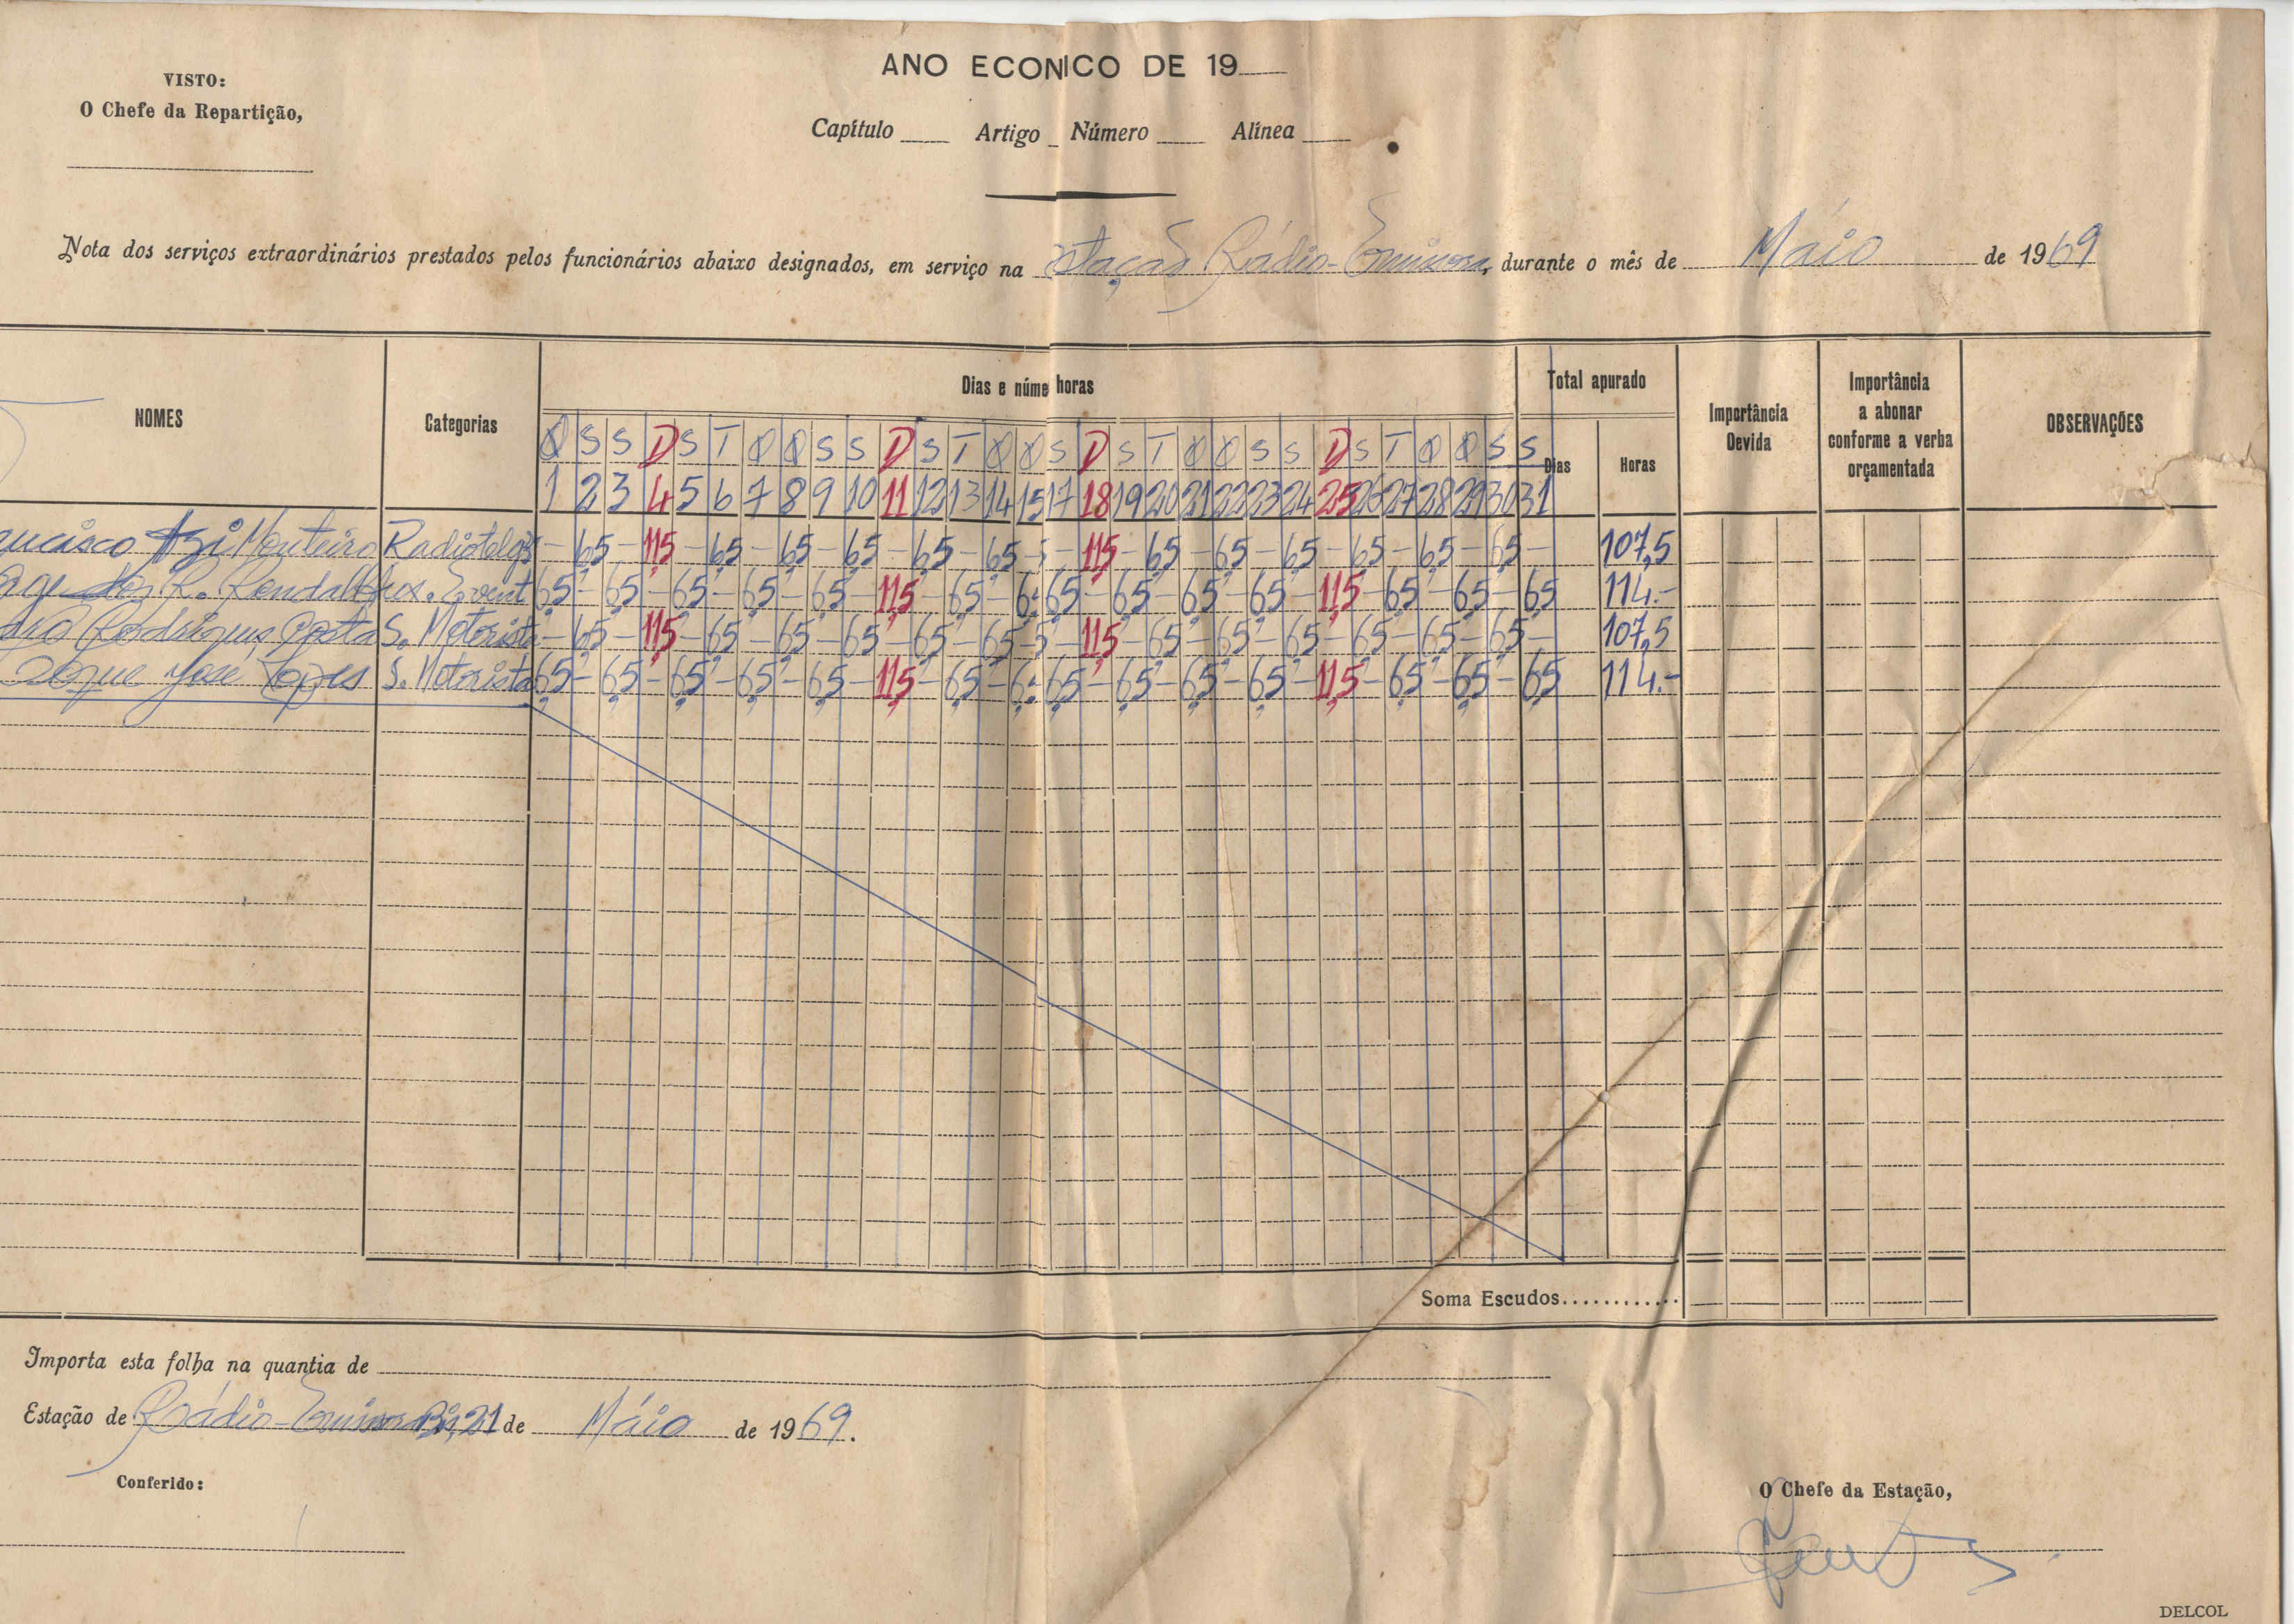 ANO ECONICO DE 19
VISTO:
O Chefe da Repartição,
Capítulo Artigo Número Alínea
Nota dos serviços extraordinários prestados pelos funcionários abaixo designados, em serviço na stação Rádio-Emissora, durante o mês de Máio de 1969
NOMES Categorias Dias e núme horas Total apurado Importância Devida Importância a abonar conforme a verba orçamentada OBSERVAÇÕES
Q S S D S T Q Q S S D S T Q Q S D S T Q Q S S D S T Q Q S S Dias Horas
1 2 3 4 5 6 7 8 9 10 11 12 13 14 15 17 18 19 20 21 22 23 24 25 26 27 28 29 30 31
Monteiro - 6,5 - 11,5 - 6,5 - 6,5 - 6,5 - 6,5 - 6,5 - 5 - 11,5 - 6,5 - 6,5 - 6,5 - 6,5 - 6,5 - 6,5 - 107,5
R. 6,5 - 6,5 - 6,5 - 6,5 - 6,5 - 11,5 - 6,5 - 6, 6,5 - 6,5 - 6,5 - 6,5 - 11,5 - 6,5 - 6,5 - 6,5 114.-
Rodrigues Costa S. Motorista - 6,5 - 11,5 - 6,5 - 6,5 - 6,5 - 6,5 - 6,5 - 5 - 11,5 - 6,5 - 6,5 - 6,5 - 6,5 - 6,5 - 6,5 - 107,5
José Lopes S. Motorista 6,5 - 6,5 - 6,5 - 6,5 - 6,5 - 11,5 - 6,5 - 6, 6,5 - 6,5 - 6,5 - 6,5 - 11,5 - 6,5 - 6,5 - 6,5 114.-
Soma Escudos............
Importa esta folha na quantia de
Estação de Rádio-Emissora 21 de Máio de 1969.
Conferido:
O Chefe da Estação,
DELCOL